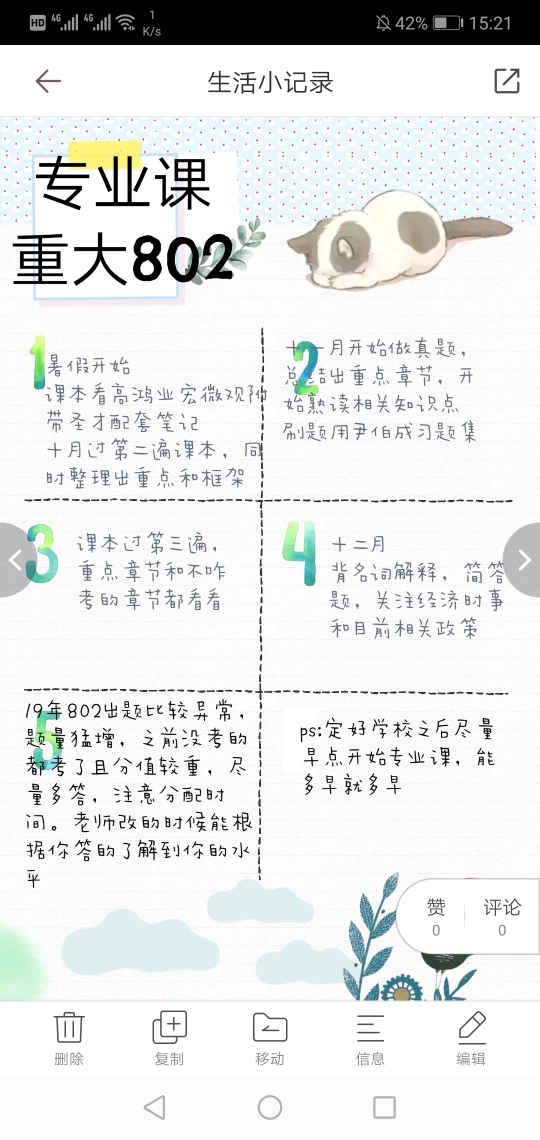 HD 4G 4G 1 K/s 42% 15:21
生活小记录
专业课
重大802
1
暑假开始
课本看高鸿业宏微观附
带圣才配套笔记
十月过第二遍课本，同
时整理出重点和框架
2
十一月开始做真题，
总结出重点章节，开
始熟读相关知识点
刷题用尹伯成习题集
3
课本过第三遍，
重点章节和不咋
考的章节都看看
4
十二月
背名词解释，简答
题，关注经济时事
和目前相关政策
5
19年802出题比较异常，
题量猛增，之前没考的
都考了且分值较重，尽
量多答，注意分配时
间。老师改的时候能根
据你答的了解到你的水
平
ps:定好学校之后尽量
早点开始专业课，能
多早就多早
赞 评论
0 0
删除 复制 移动 信息 编辑